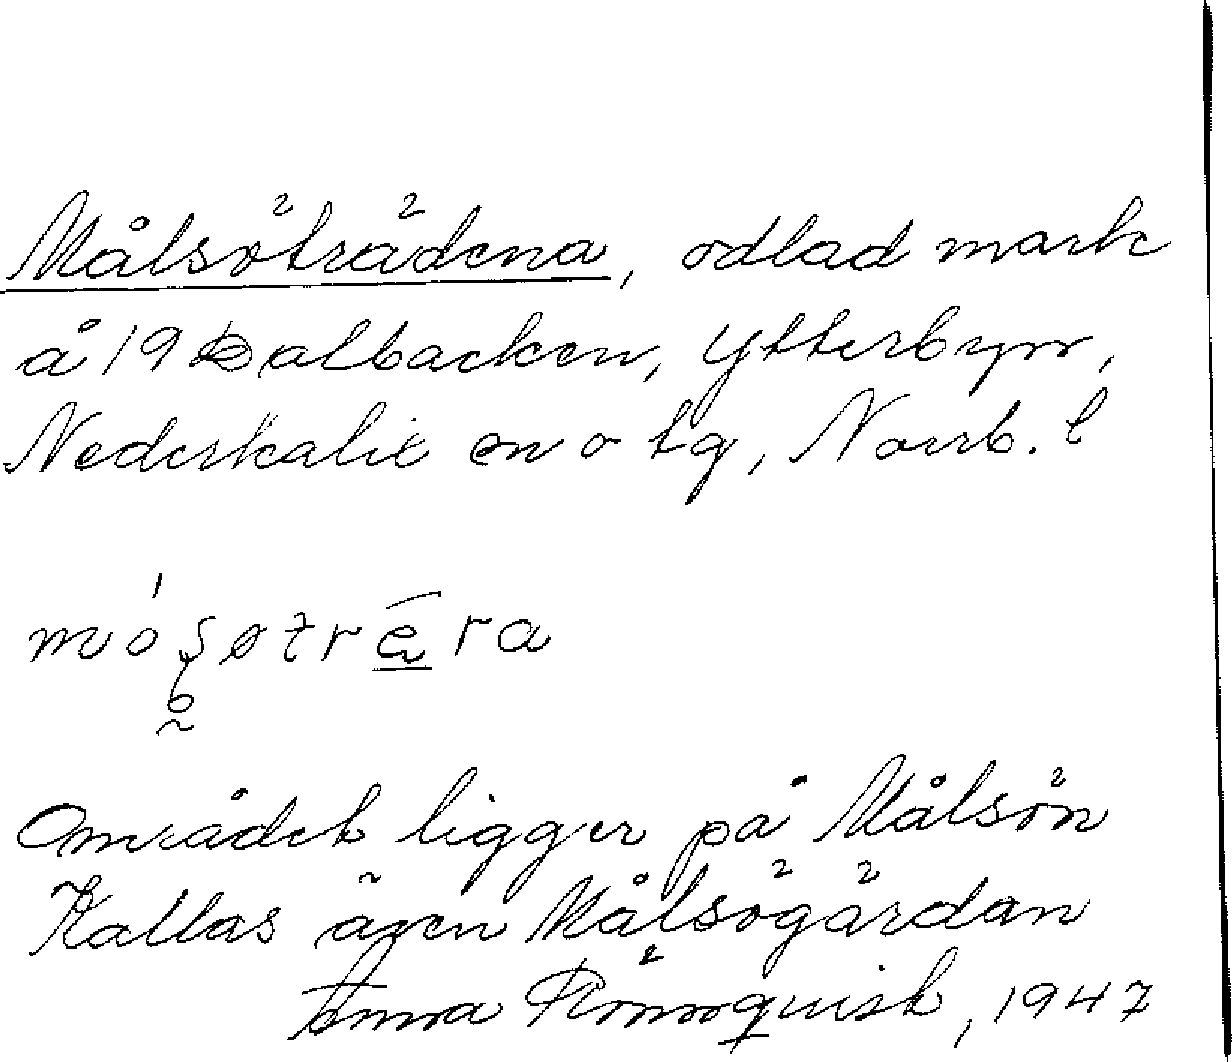 Målsöträdena, odlad mark
å 19 Dalbacken, Ytterbyn,
Nederkalix sn o tg, Norrb. l
Området ligger på Målsön
Kallas även Målsögärdan
Anna Rönnquist, 1947